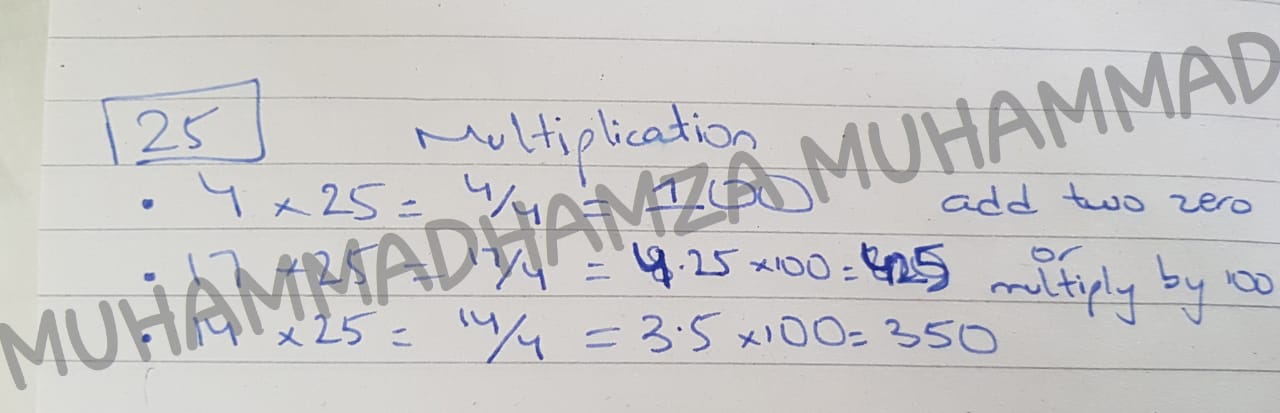 25 Multiplication
• 4 × 25 = 4/4 = 100 add two zero
or
• 17 × 25 = 17/4 = 4.25 ×100 = 425 multiply by 100
• 14 × 25 = 14/4 = 3.5 ×100 = 350
MUHAMMADHAMZA MUHAMMAD